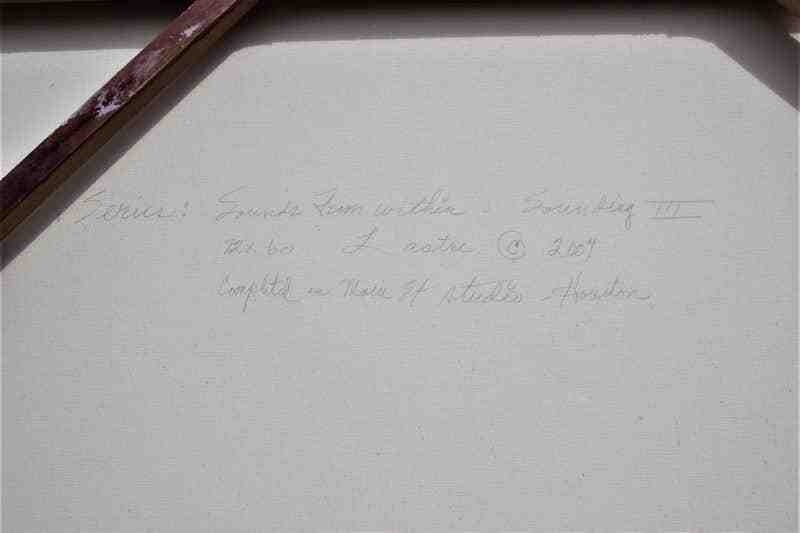 Series: Sounds From within - Sounding III
x 60 L astre © 2009
Complet'd in St studio - Houston